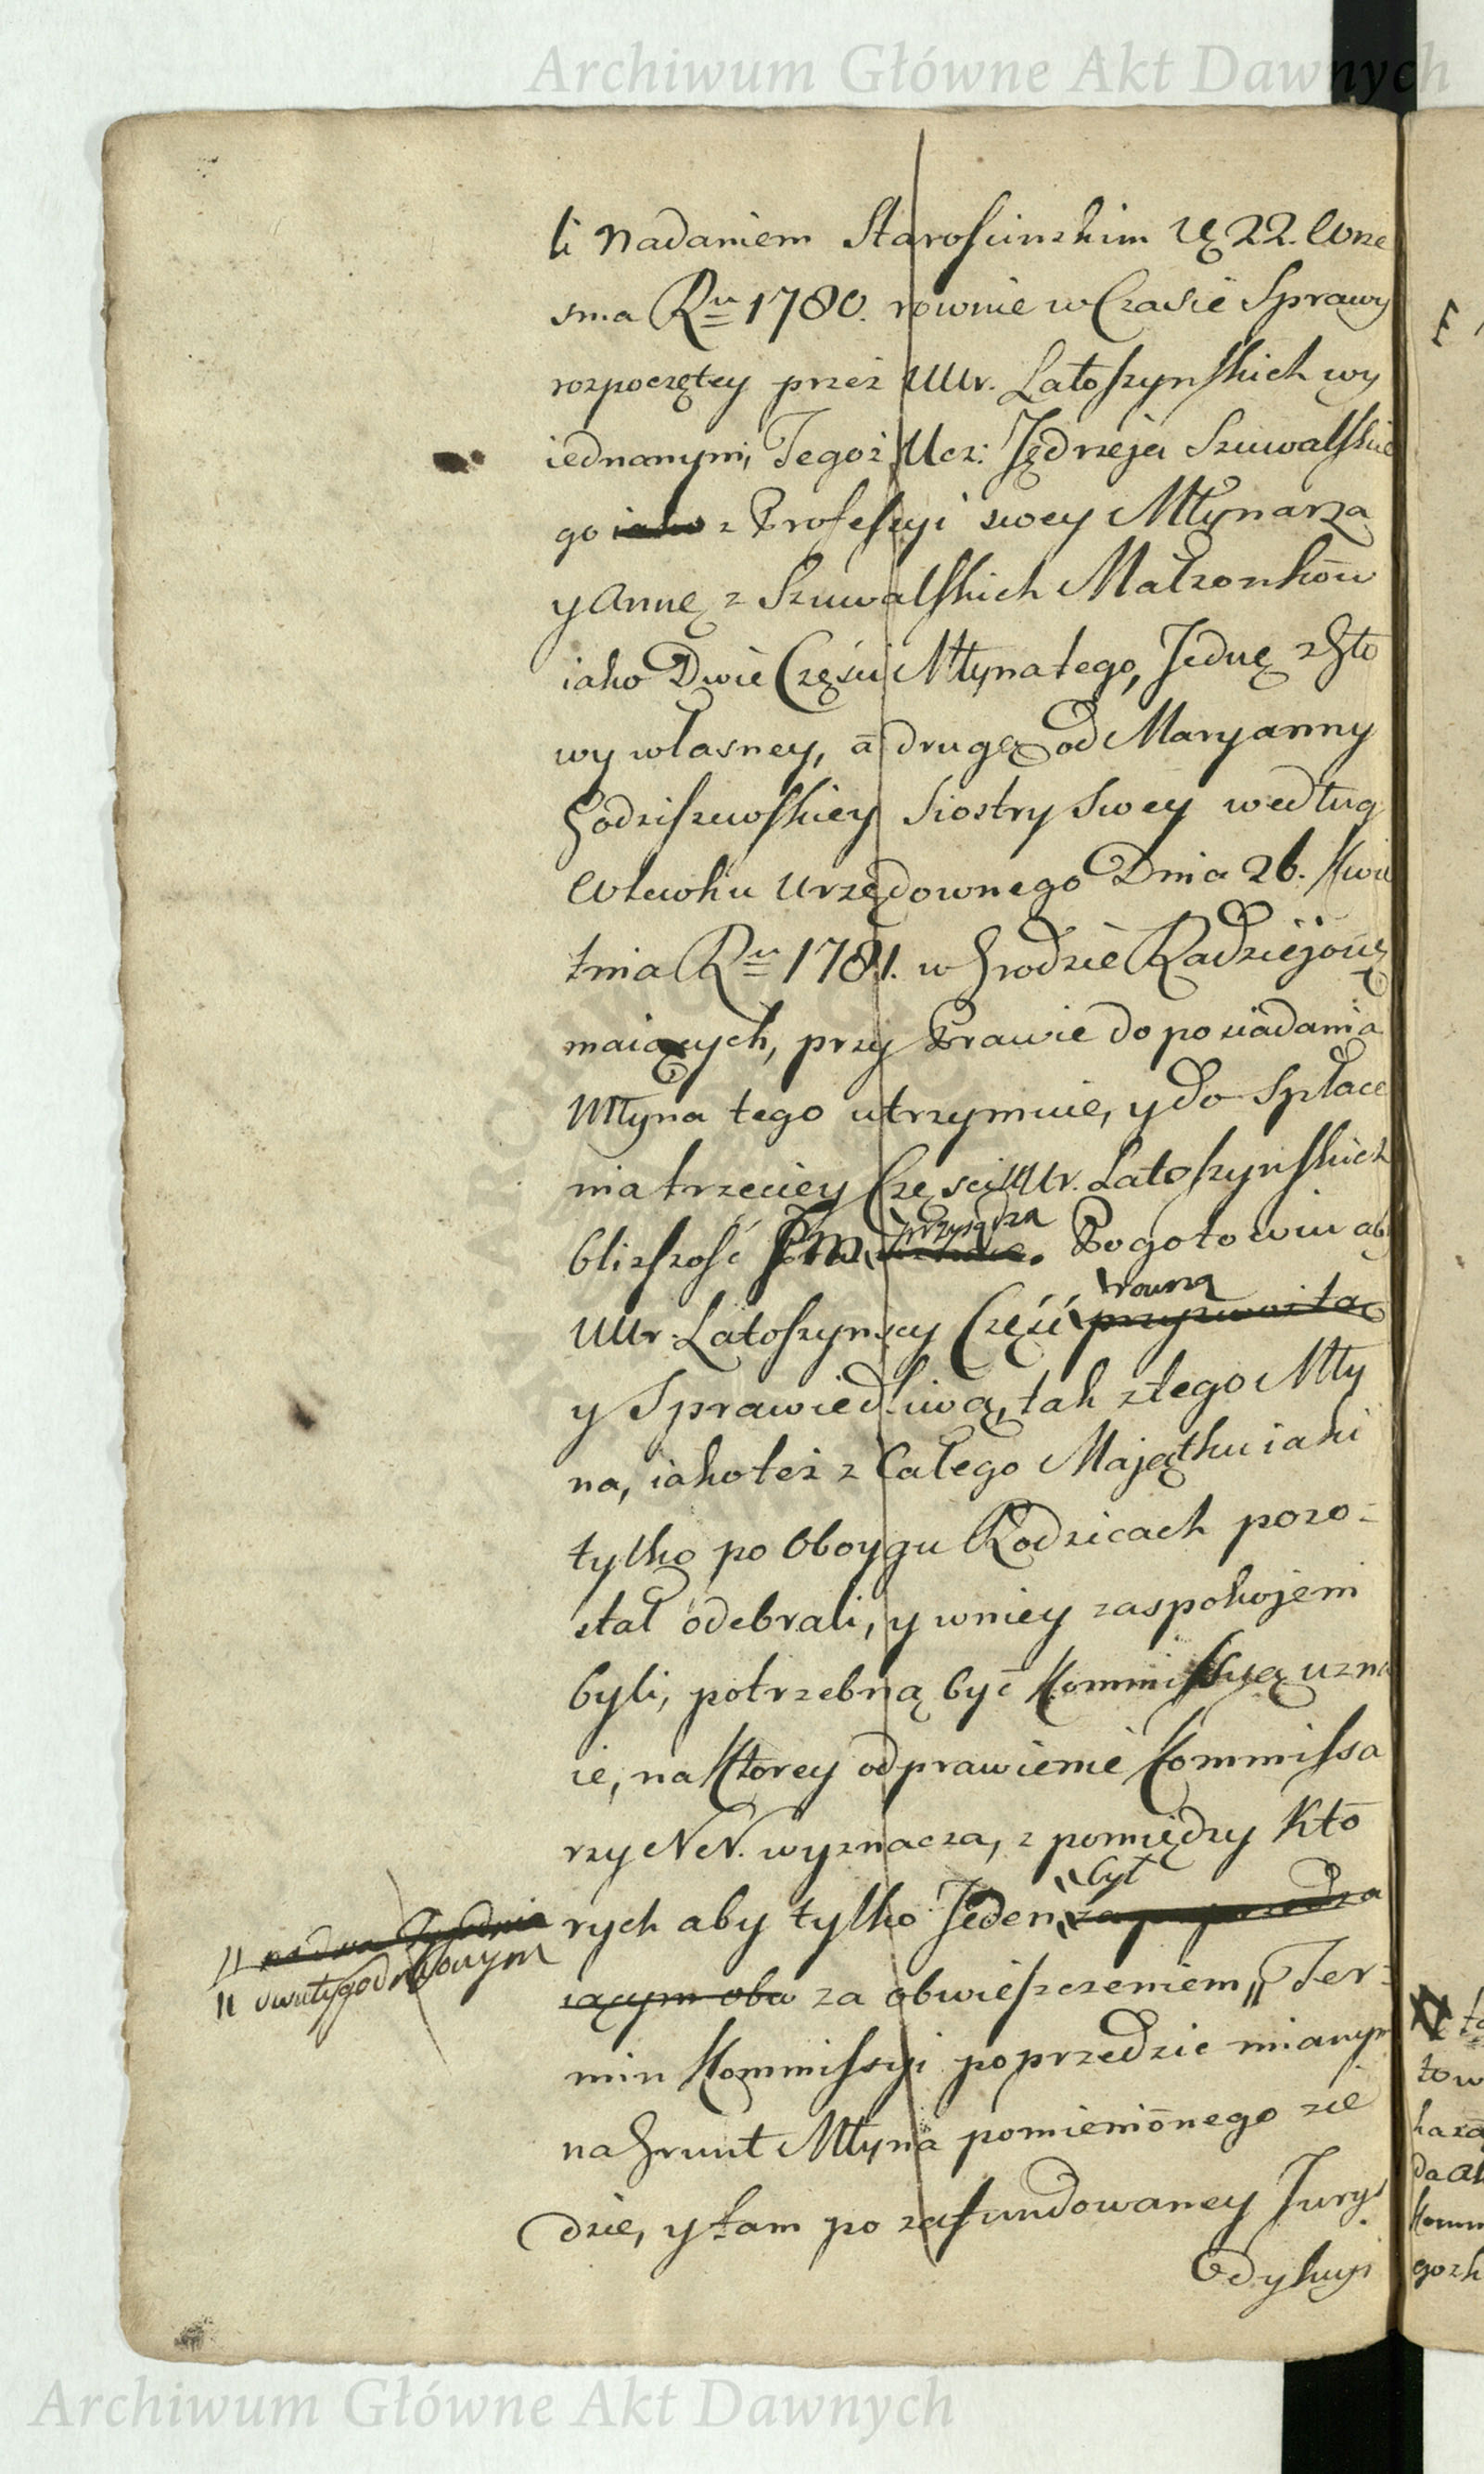 Archiwum Główne Akt Dawnych
li Nadaniem Starościnskim d. 22. Wrze
snia Ru 1780. rownie w Czasie Sprawy
rozpoczętey przez UUr. Latoszynskich wy
iednanym, Tegoż Ucz: Jędrzeja Szuwalskie
go iako z Professyi swey Młynarza
y Annę z Szuwalskich Małżonkow
iako Dwie Części Młyna tego, Jednę z Gło
wy własney, a drugą od Maryanny
Godziszewskiey Siostry Swey według
Wlewku Urzędownego Dnia 26. Kwie
tnia Ru 1781. w Grodzie Radziejow:
maiących, przy Prawie do posiadania
Młyna tego utrzymuie, y do Spłace
nia trzeciey Części UUr. Latoszynskich
przysądza
bliższość Im. Pogotowiu aby
rowną
UUr. Latoszynscy Część przyzwoitą
y Sprawiedliwą, tak z tego Mły
na, iako też z Całego Majątku iaki
tylko po Oboygu Rodzicach pozo-
stał odebrali, y w niey zaspokojeni
byli, potrzebną być Kommissyą uzna
ie, na Ktorey odprawienie Kommissa
rzy NN. wyznacza, z pomiędzy Kto
był
rych aby tylko Jeden
iącym oba za obwieszczeniem || Ter-
|| na dwa Tygodnie
|| dwutygodniowym
min Kommissyi poprzedzic mianym
na Grunt Młyna pomienionego zie
dzie, y tam po zafundowaney Jurys
Edykcyi
ARCHIWUM
to w
da ab
Komm
Archiwum Główne Akt Dawnych